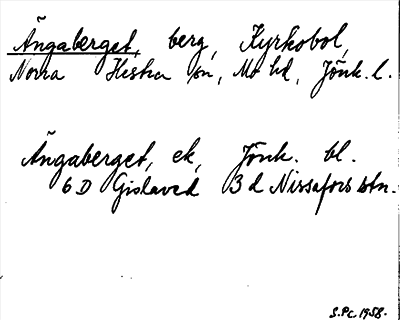 Ängaberget, berg, Kyrkobol,
Norra Hestra sn, Mo hd, Jönk. l.
Ängaberget, ek, Jönk. bl.
6 D Gislaved 3 d Nissafors stn.
S.Pc. 1958.